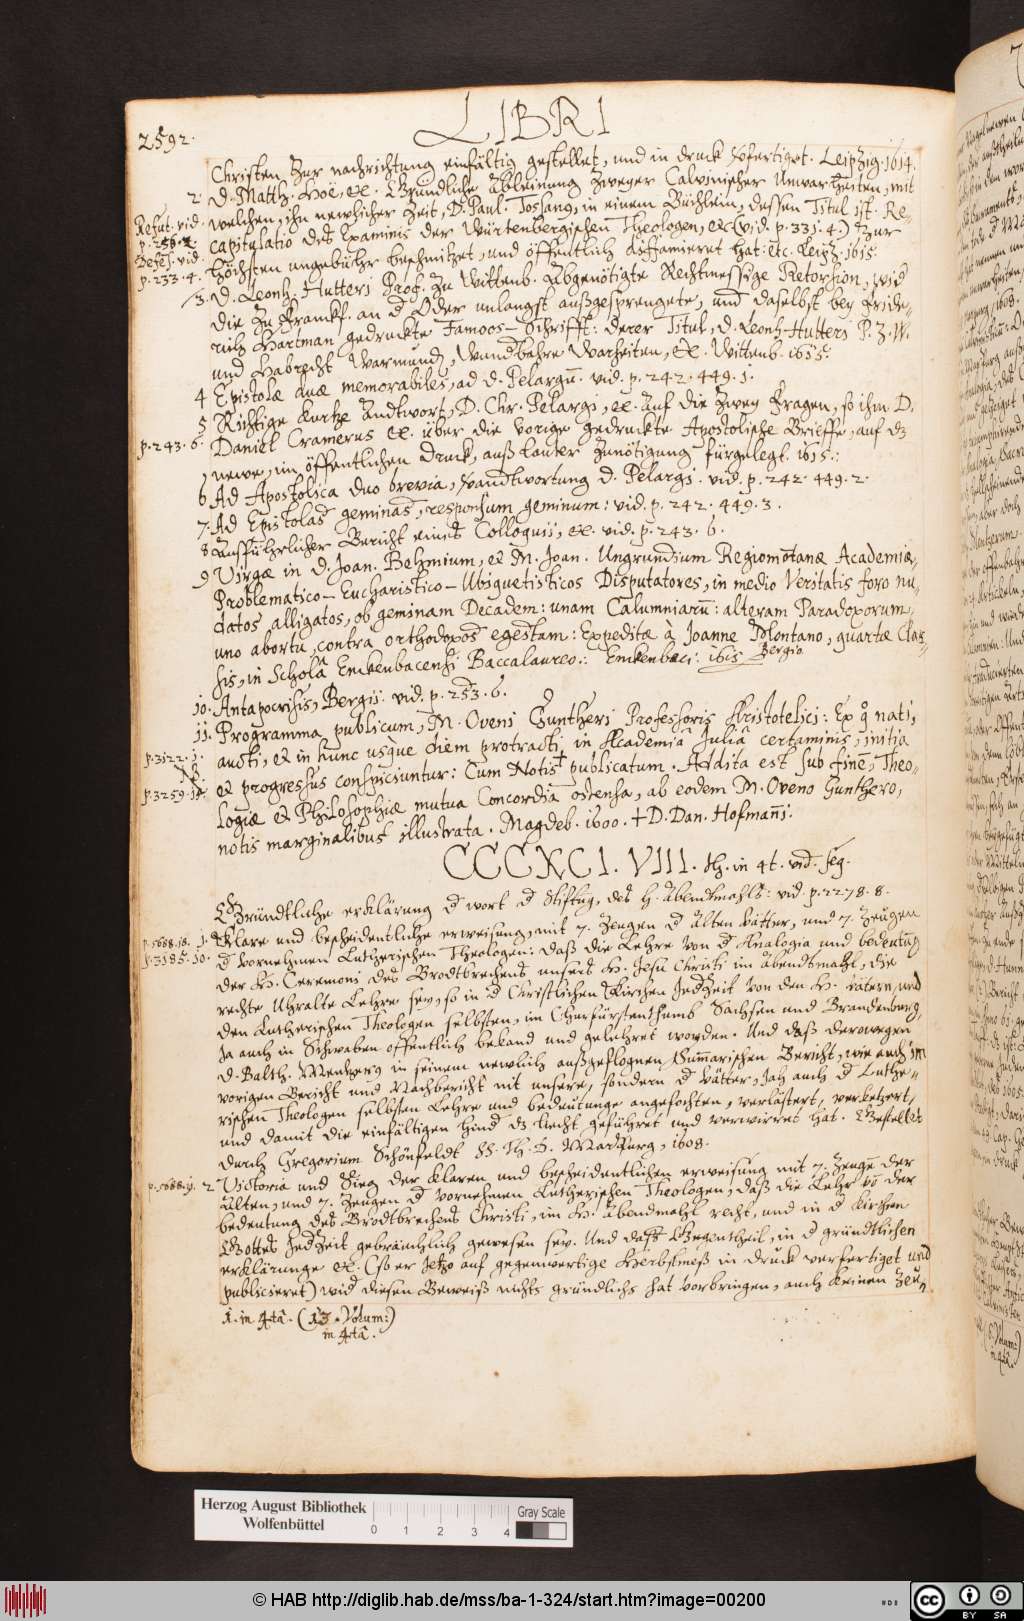 2592.
LIBRI
Christen zur nachrichtung einfältig gestellet, und in druck verfertiget. Leipzig. 1614.
2. D. Matth. Hoë, &c. Gründliche Ableinung zweyer Calvinischer Unwarheiten, mit
Refut. vid. welchen, ihn newlicher Zeit, D. Paul. Tossanus, in einem Büchlein, dessen Titul ist. Re-
p. 256. 2. capitulatio des Examinis der Würtenbergischen Theologen, &c (vid. p. 331. 4.) Zur
Defes. vid. höchsten ungebühr beschmitzet, und öffentlich diffamieret hat: etc. Leipz. 1615.
p. 233. 4.
3. D. Leonh. Hutteri Prof. zu Wittenb. Abgenötigte Rechtmessige Retorsion, wid
die zu Franckf. an d Oder unlangst außgesprengete, und daselbst bey Fride-
rich Hartman gedruckte Famoos-Schrifft: derer Titul, D. Leonh. Hutteri P. Z. W.
und Habrecht Warmund, Wandbahre Warheiten, &c. Wittenb. 1615.
4 Epistolæ duæ memorabiles, ad D. Pelargū. vid. p. 242. 449. 1.
5 Richtige kurtze Andtwort, D. Chr. Pelargi, &c. Auf die zwey Fragen, so ihm D.
p. 243. 6. Daniel Cramerus &c. über die vorige gedruckte Apostolische Brieffe, auf dz
newe, im öffentlichen druck, auß lauter zunötigung fürgelegt. 1615.:
6 Ad Apostolica duo brevia, Andtwortung D. Pelargi. vid. p. 242. 449. 2.
7. Ad Epistolas geminas, responsum geminum: vid. p. 242. 449. 3.
8 Ausführlicher Bericht eines Colloquii, &c. vid. p. 243. 6.
9 Virgæ in D. Joan. Behmium, & M. Joan. Ungrundium Regiomōtanæ Academiæ
Problematico-Eucharistico-Ubiquetisticos Disputatores, in medio Veritatis foro nu-
datos alligatos, ob geminam Decadem: unam Calumniarū: alteram Paradoxorum,
uno abortu, contra orthodoxos egestam: Expeditæ à Joanne Montano, quartæ Clas-
sis, in Scholâ Enckenbacensi Baccalaureo.: Enckenbaci: 1615 Bergio
10. Antapocrisis, Bergii. vid. p. 253. 6.
11. Programma publicum, M. Oveni Guntheri Professoris Aristotelici: Ex q nati,
p. 3122. 1. aucti, & in hunc usque diem protracti in Academiâ Juliâ certaminis, initia
p. 3259. 11. & progressus conspiciuntur: Cum Notis † publicatum. Addita est sub finē, Theo-
logiæ & Philosophiæ mutua Concordia ostensa, ab eodem M. Oveno Gunthero,
notis marginalibus illustrata. Magdeb. 1600. † D. Dan. Hofmañi.
CCCXCI. VIII. th. in 4t. vid. seq.
Gründtliche erklärung d wort d Stiftūg, des H. Abendtmahls: vid. p. 2278. 8.
p. 1688. 18. 1. Klare und bescheidentliche erweisung, mit 7. Zeugen d Alten Vätter, und 7. Zeugen
p. 3185. 10. d vornehmen Lutherischen Theologen: daß die Lehre von d Analogia und bedeutūg
der H. Ceremoni des Brodtbrechens unsers H. Jesu Christi im Abendtmahl, die
rechte Uhralte Lehre sey, so in d Christlichen Kirchen Jedzeit von den H. Vätern, und
den Lutherischen Theologen selbsten, im Churfürstenthumb Sachsen und Brandenburg,
Ja auch in Schwaben öffentlich bekand und gelehret worden. Und daß derowegen
D. Balth. Mentzerg in seinem newlich außgeflognen Summarischen Bericht, wie auch im
vorigen Bericht und Nachbericht nit unsere, sondern d Vätter, Jah auch d Luthe-
rischen Theologen selbsten Lehre und bedeutunge angefochten, verlästert, verketzert,
und damit die einfältigen hind dz liecht geführet und verwirret hat. Gestellet
durch Gregorium Schönfeldt SS. Th. D. Marpurg, 1608.
p. 1688. 19. 2 Victoria und Sieg der klaren und bescheidentlichen erweisung mit 7. Zeugē der
Alten, und 7. Zeugen d vornehmen Lutherischen Theologen, daß die Lehr vō der
bedeutung des Brodtbrechens Christi, im H. Abendtmahl recht, und in d Kirchen
Gottes Jedzeit gebräuchlich gewesen sey. Und daß Gegentheil, in d gründtlichen
erklärunge &c. (so er Jetzo auf gegenwertige Herbstmeß in druck verfertiget und
publicieret) wid diesen Beweiß nichts gründlichs hat vorbringen, auch keinen Zeu-
1. in 4tâ. (13. Volum:)
in 4tâ.
Herzog August Bibliothek
Wolfenbüttel
0 1 2 3 4
Gray Scale
© HAB http://diglib.hab.de/mss/ba-1-324/start.htm?image=00200
cc BY SA